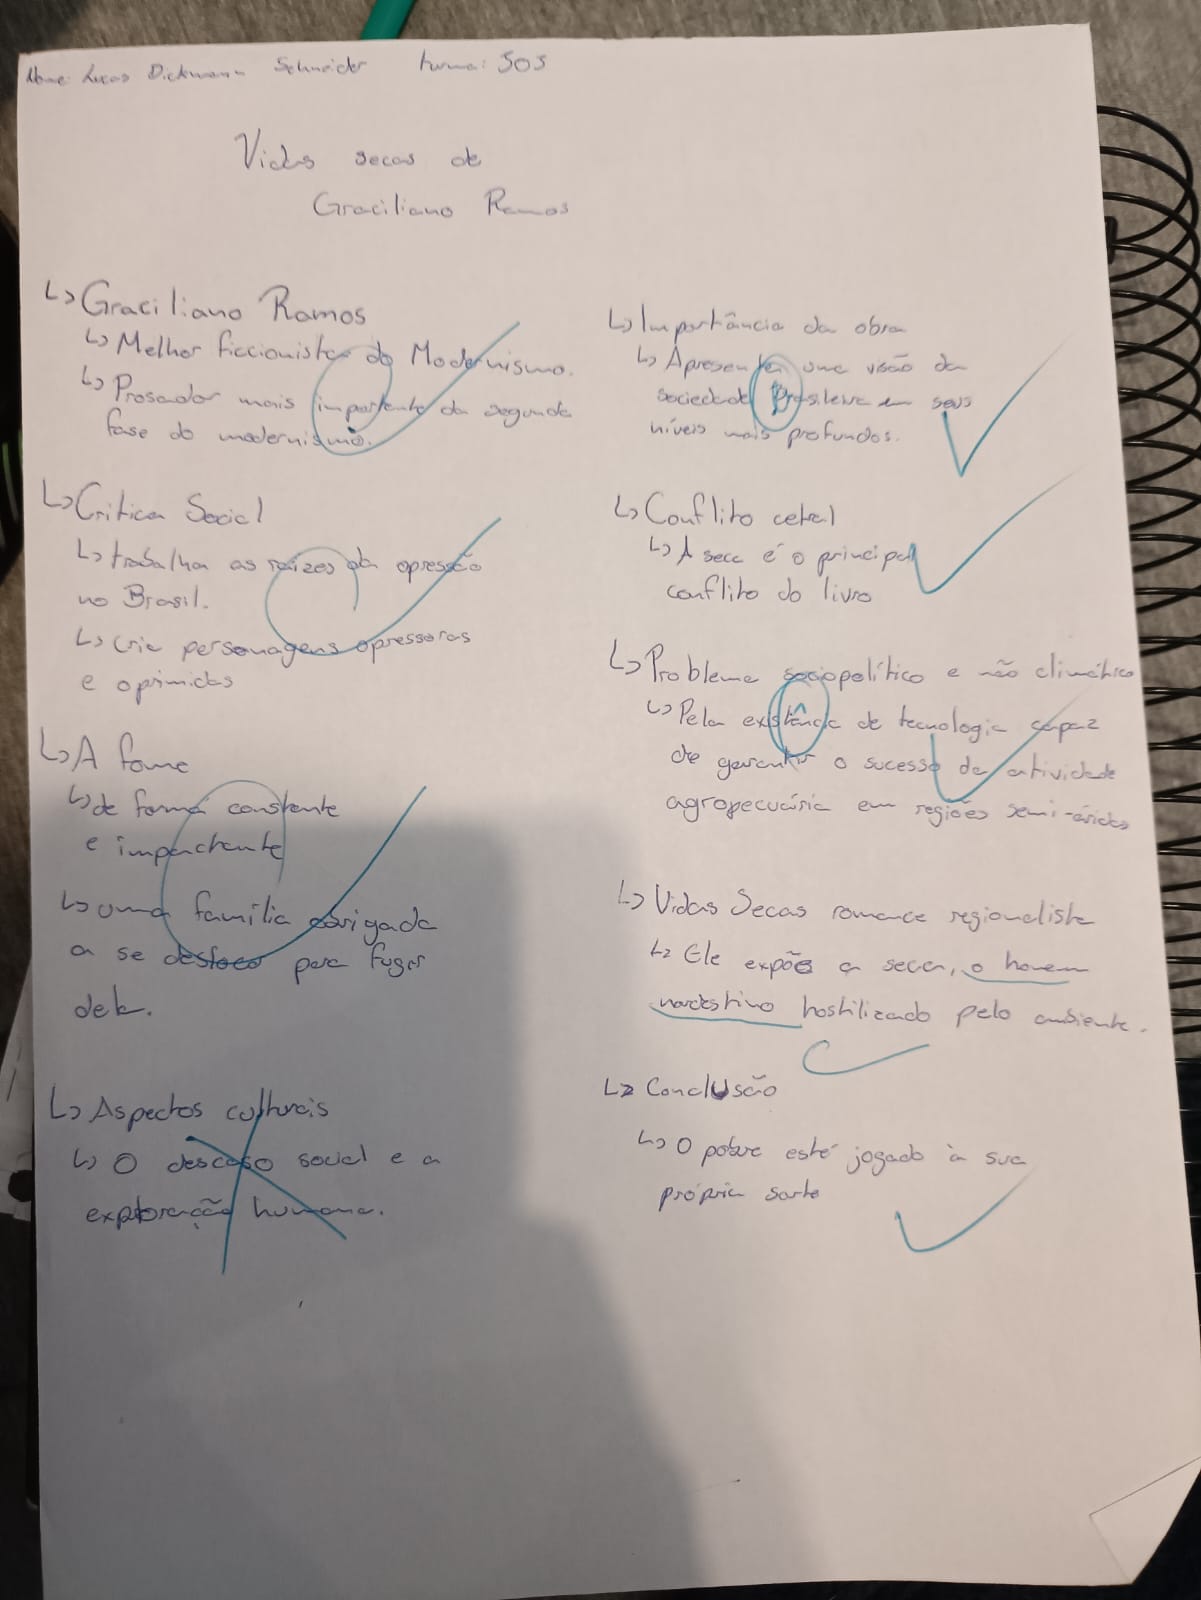 Nome: Lucas Dickmann Schneider turma: 303
Vidas secas de
Graciliano Ramos
↳ Graciliano Ramos
↳ Melhor ficcionista do Modernismo.
↳ Prosador mais importante da segunda
fase do modernismo.
↳ Critica Social
↳ trabalha as raízes da opressão
no Brasil.
↳ cria personagens opressoras
e oprimidas
↳ A fome
↳ de forma constante
e impactante
↳ uma família obrigada
a se desloca para fugir
dela.
↳ Aspectos culturais
↳ O descaso social e a
exploração humana.
↳ Importância da obra
↳ Apresenta uma visão da
sociedade Brasileira em seus
níveis mais profundos.
↳ Conflito cetral
↳ A seca é o principal
conflito do livro
↳ Problema sociopolítico e não climático
↳ Pela existência de tecnologia capaz
de garantir o sucesso da atividade
agropecuária em regiões semi-áridas
↳ Vidas Secas romance regionalista
↳ Ele expõe a seca, o homem
nordestino hostilizado pelo ambiente.
↳ Conclusão
↳ O pobre está jogado à sua
própria sorte